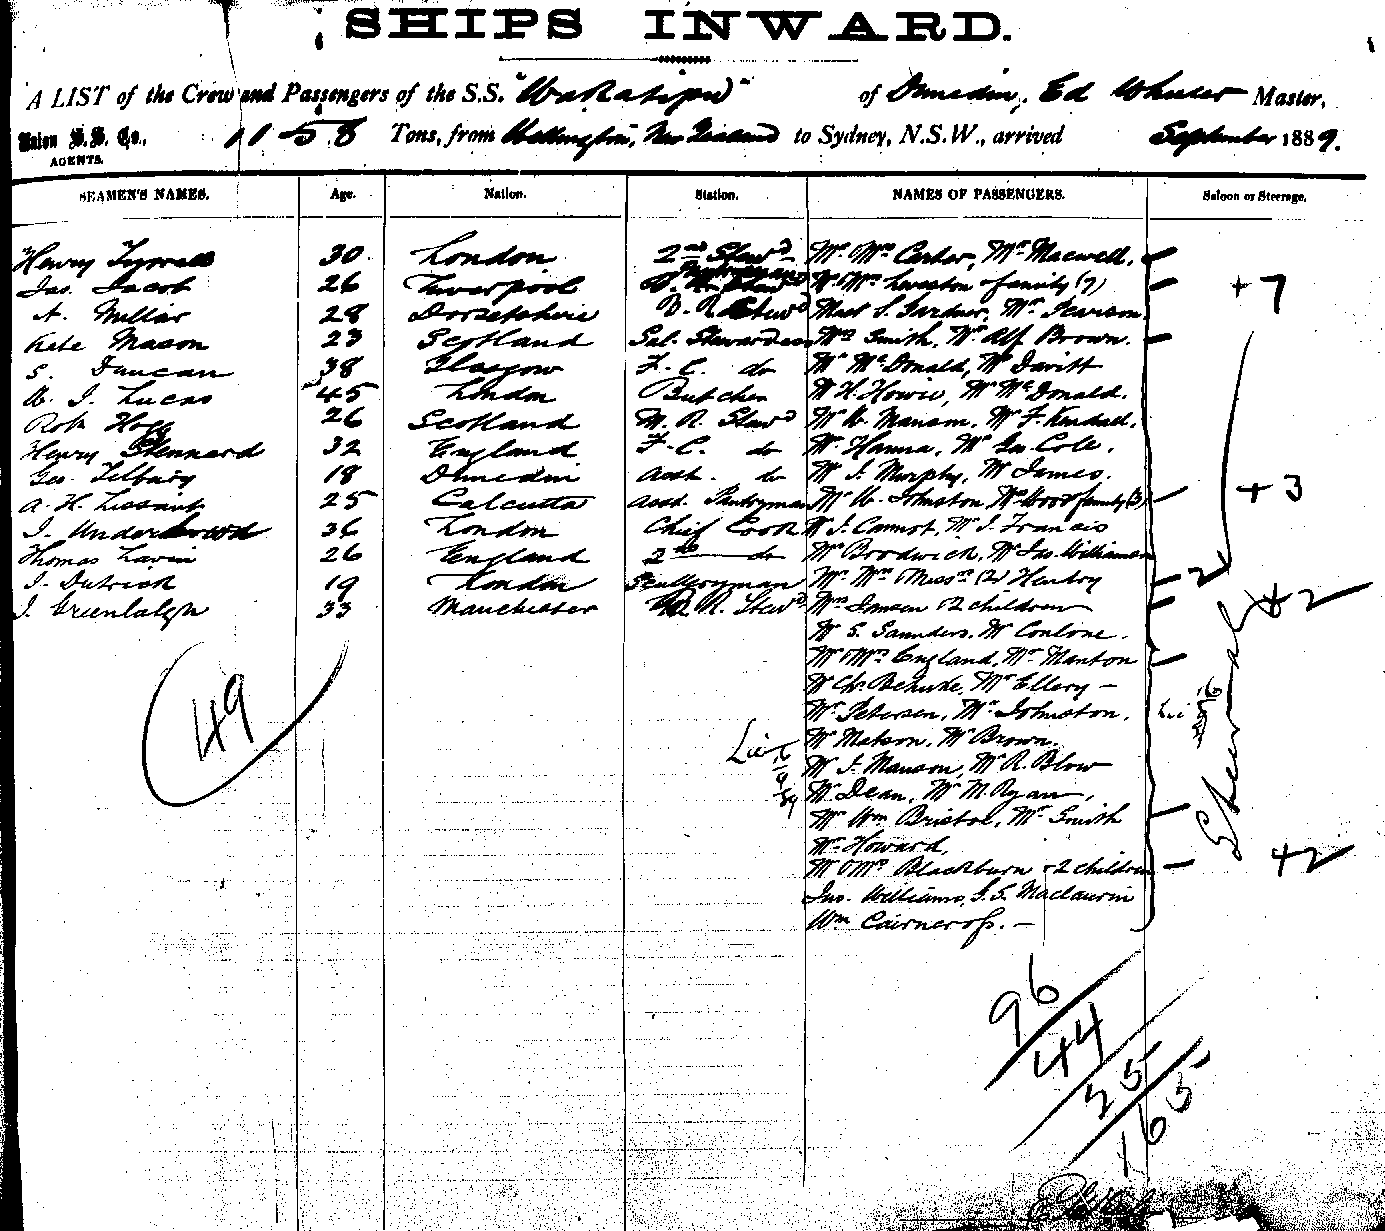 SHIPS INWARD.
A LIST of the Crew and Passengers of the S.S. "Wakatipu" of Dunedin, Ed Wheeler Master,
Union S.S. Co., AGENTS. 1158 Tons, from Wellington, New Zealand to Sydney, N.S.W., arrived September 1889.
SEAMEN'S NAMES. Age. Nation. Station. NAMES OF PASSENGERS. Saloon or Steerage.
Henry 30 London 2nd Stewd Mr Mrs Carter, Mr Maxwell.
Jas. Jacob 26 Liverpool Pantryman Mr & Mrs Liveston & family (7) +7
A. Millar 28 Dorsetshire B. R. Stewd S. Gardner, Mr Pearson
Kate Mason 23 Scotland Sal. Stewardess Mrs Smith, Mr Alf Brown.
S. Duncan 38 Glasgow F. C. do Mr McDonald, Mr Davitt
W. J. Lucas 45 London Butcher Mr H. Howie, Mr McDonald.
Robt Hogg 26 Scotland M. R. Stewd Mr W. Manson, Mr F. Kendall.
Henry Stennard 32 England F. C. do Mr Hanna, Mr Geo. Cole.
Geo. Tilbury 18 Dunedin Asst. do Mr J. Murphy, Mr James.
A. H. 25 Calcutta Asst. Pantryman Mr W. Johnston, Mr Wood & family (3) +3
J. Underwood 36 London Chief Cook Mr J. Cannot, Mr J. Francis
Thomas Lavin 26 England 2nd do Mr Brodwick, Mr Jno. Williamson
J. Dutrich 19 London Sculleryman Mr Mrs Misses (2) Henbry 2
J. Greenhalgh 33 Manchester B. R. Stewd Mrs Jansen & 2 children +2
Mr S. Saunders, Mr Conlone.
Mr & Mrs England, Mr Manton
Mr Chs. Behnke, Mr Ellery —
49
Mr Petersen, Mr Johnston.
Mr Matson, Mr Brown.
Mr J. Manson, Mr R. Blow
Mr Dean, Mr M. Ryan,
Mr Wm Bristol, Mr Smith
Mr Howard,
Mr & Mrs Blackburn & 2 children +2
Jno. Williams, J. S. Maclaurin
Wm Cairncross. —
Steerage
96
44
25
165